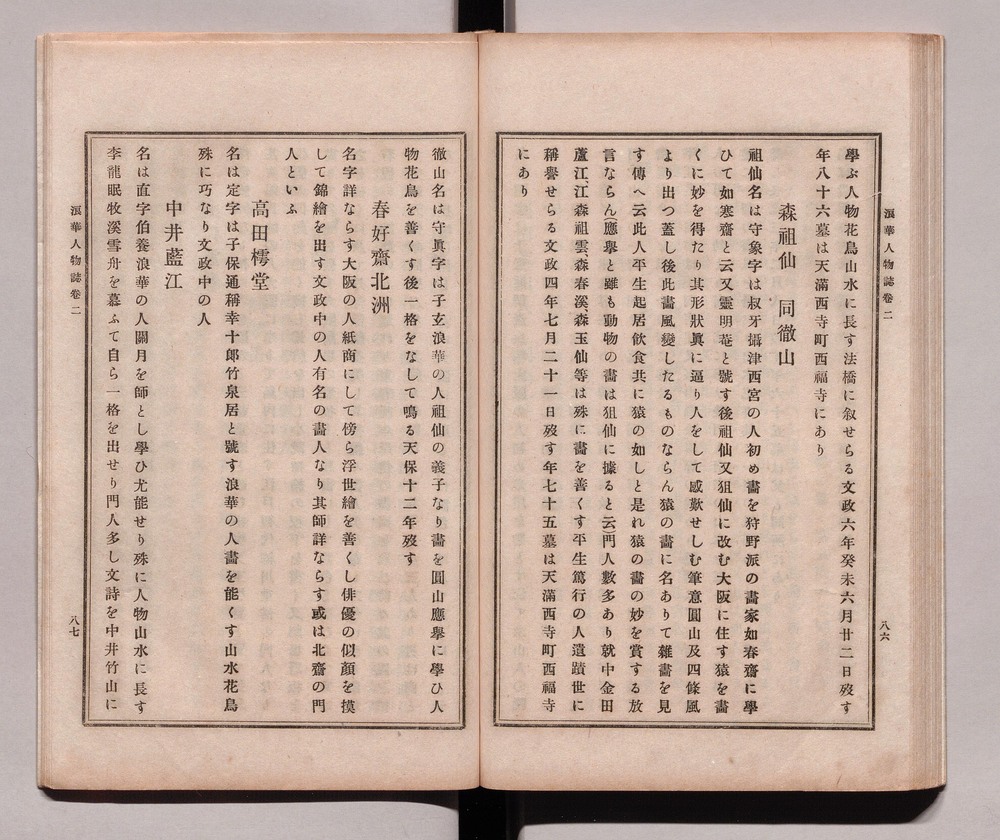 浪華人物誌卷二
八六
學ぶ人物花鳥山水に長す法橋に叙せらる文政六年癸未六月廿二日歿す
年八十六墓は天滿西寺町西福寺にあり
森祖仙 同徹山
祖仙名は守象字は叔牙攝津西宮の人初め畵を狩野派の畵家如春齋に學
ひて如寒齋と云又靈明菴と號す後祖仙又狙仙に改む大阪に住す猿を畵
くに妙を得たり其形狀眞に逼り人をして感歎せしむ筆意圓山及四條風
より出つ蓋し後此畵風變したるものならん猿の畵に名ありて雜畵を見
す傳へ云此人平生起居飮食共に猿の如しと是れ猿の畵の妙を賞する放
言ならん(應擧と雖も動物の畵は狙仙に據ると云)門人數多あり就中金田
蘆江江森祖雲森春溪森玉仙等は殊に畵を善くす平生篤行の人遺蹟世に
稱譽せらる文政四年七月二十一日歿す年七十五墓は天滿西寺町西福寺
にあり
徹山名は守眞字は子玄浪華の人祖仙の義子なり畵を圓山應擧に學ひ人
物花鳥を善くす後一格をなして鳴る天保十二年歿す
春好齋北洲
名字詳ならす大阪の人紙商にして傍ら浮世繪を善くし俳優の似顏を摸
して錦繪を出す文政中の人有名の畵人なり其師詳ならす或は北齋の門
人といふ
高田樗堂
名は定字は子保通稱幸十郞竹泉居と號す浪華の人畵を能くす山水花鳥
殊に巧なり文政中の人
中井藍江
名は直字伯養浪華の人關月を師とし學ひ尤能せり殊に人物山水に長す
李龍眠牧溪雪舟を慕ふて自ら一格を出せり門人多し文詩を中井竹山に
浪華人物誌卷二
八七